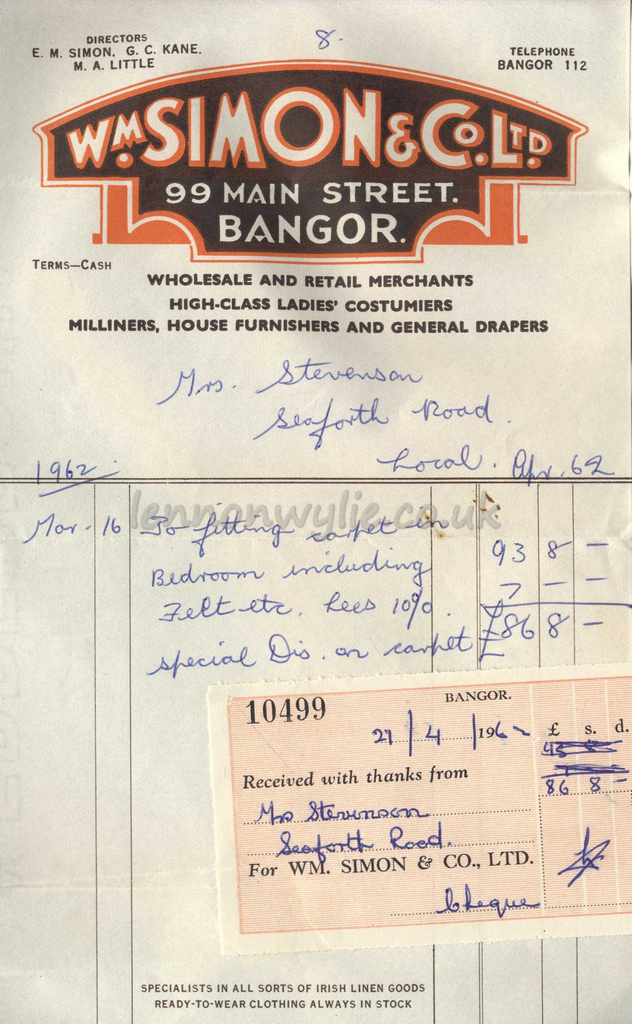 8-
DIRECTORS
E. M. SIMON. G. C. KANE.
M. A. LITTLE
TELEPHONE
BANGOR 112
WM. SIMON & CO. LTD.
99 MAIN STREET.
BANGOR.
TERMS—CASH
WHOLESALE AND RETAIL MERCHANTS
HIGH-CLASS LADIES' COSTUMIERS
MILLINERS, HOUSE FURNISHERS AND GENERAL DRAPERS
Mrs. Stevenson
Seaforth Road.
Local. Apr. 62
1962
lennonwylie.co.uk
Mar. 16 To fitting carpet in
Bedroom including 93 8 –
Felt etc. Less 10% 7 – –
special Dis. on carpet £86 8 –
10499 BANGOR.
21/4/196 £ s. d.
Received with thanks from 86 8 –
Mrs Stevenson
Seaforth Road.
For WM. SIMON & CO., LTD.
Cheque
SPECIALISTS IN ALL SORTS OF IRISH LINEN GOODS
READY-TO-WEAR CLOTHING ALWAYS IN STOCK